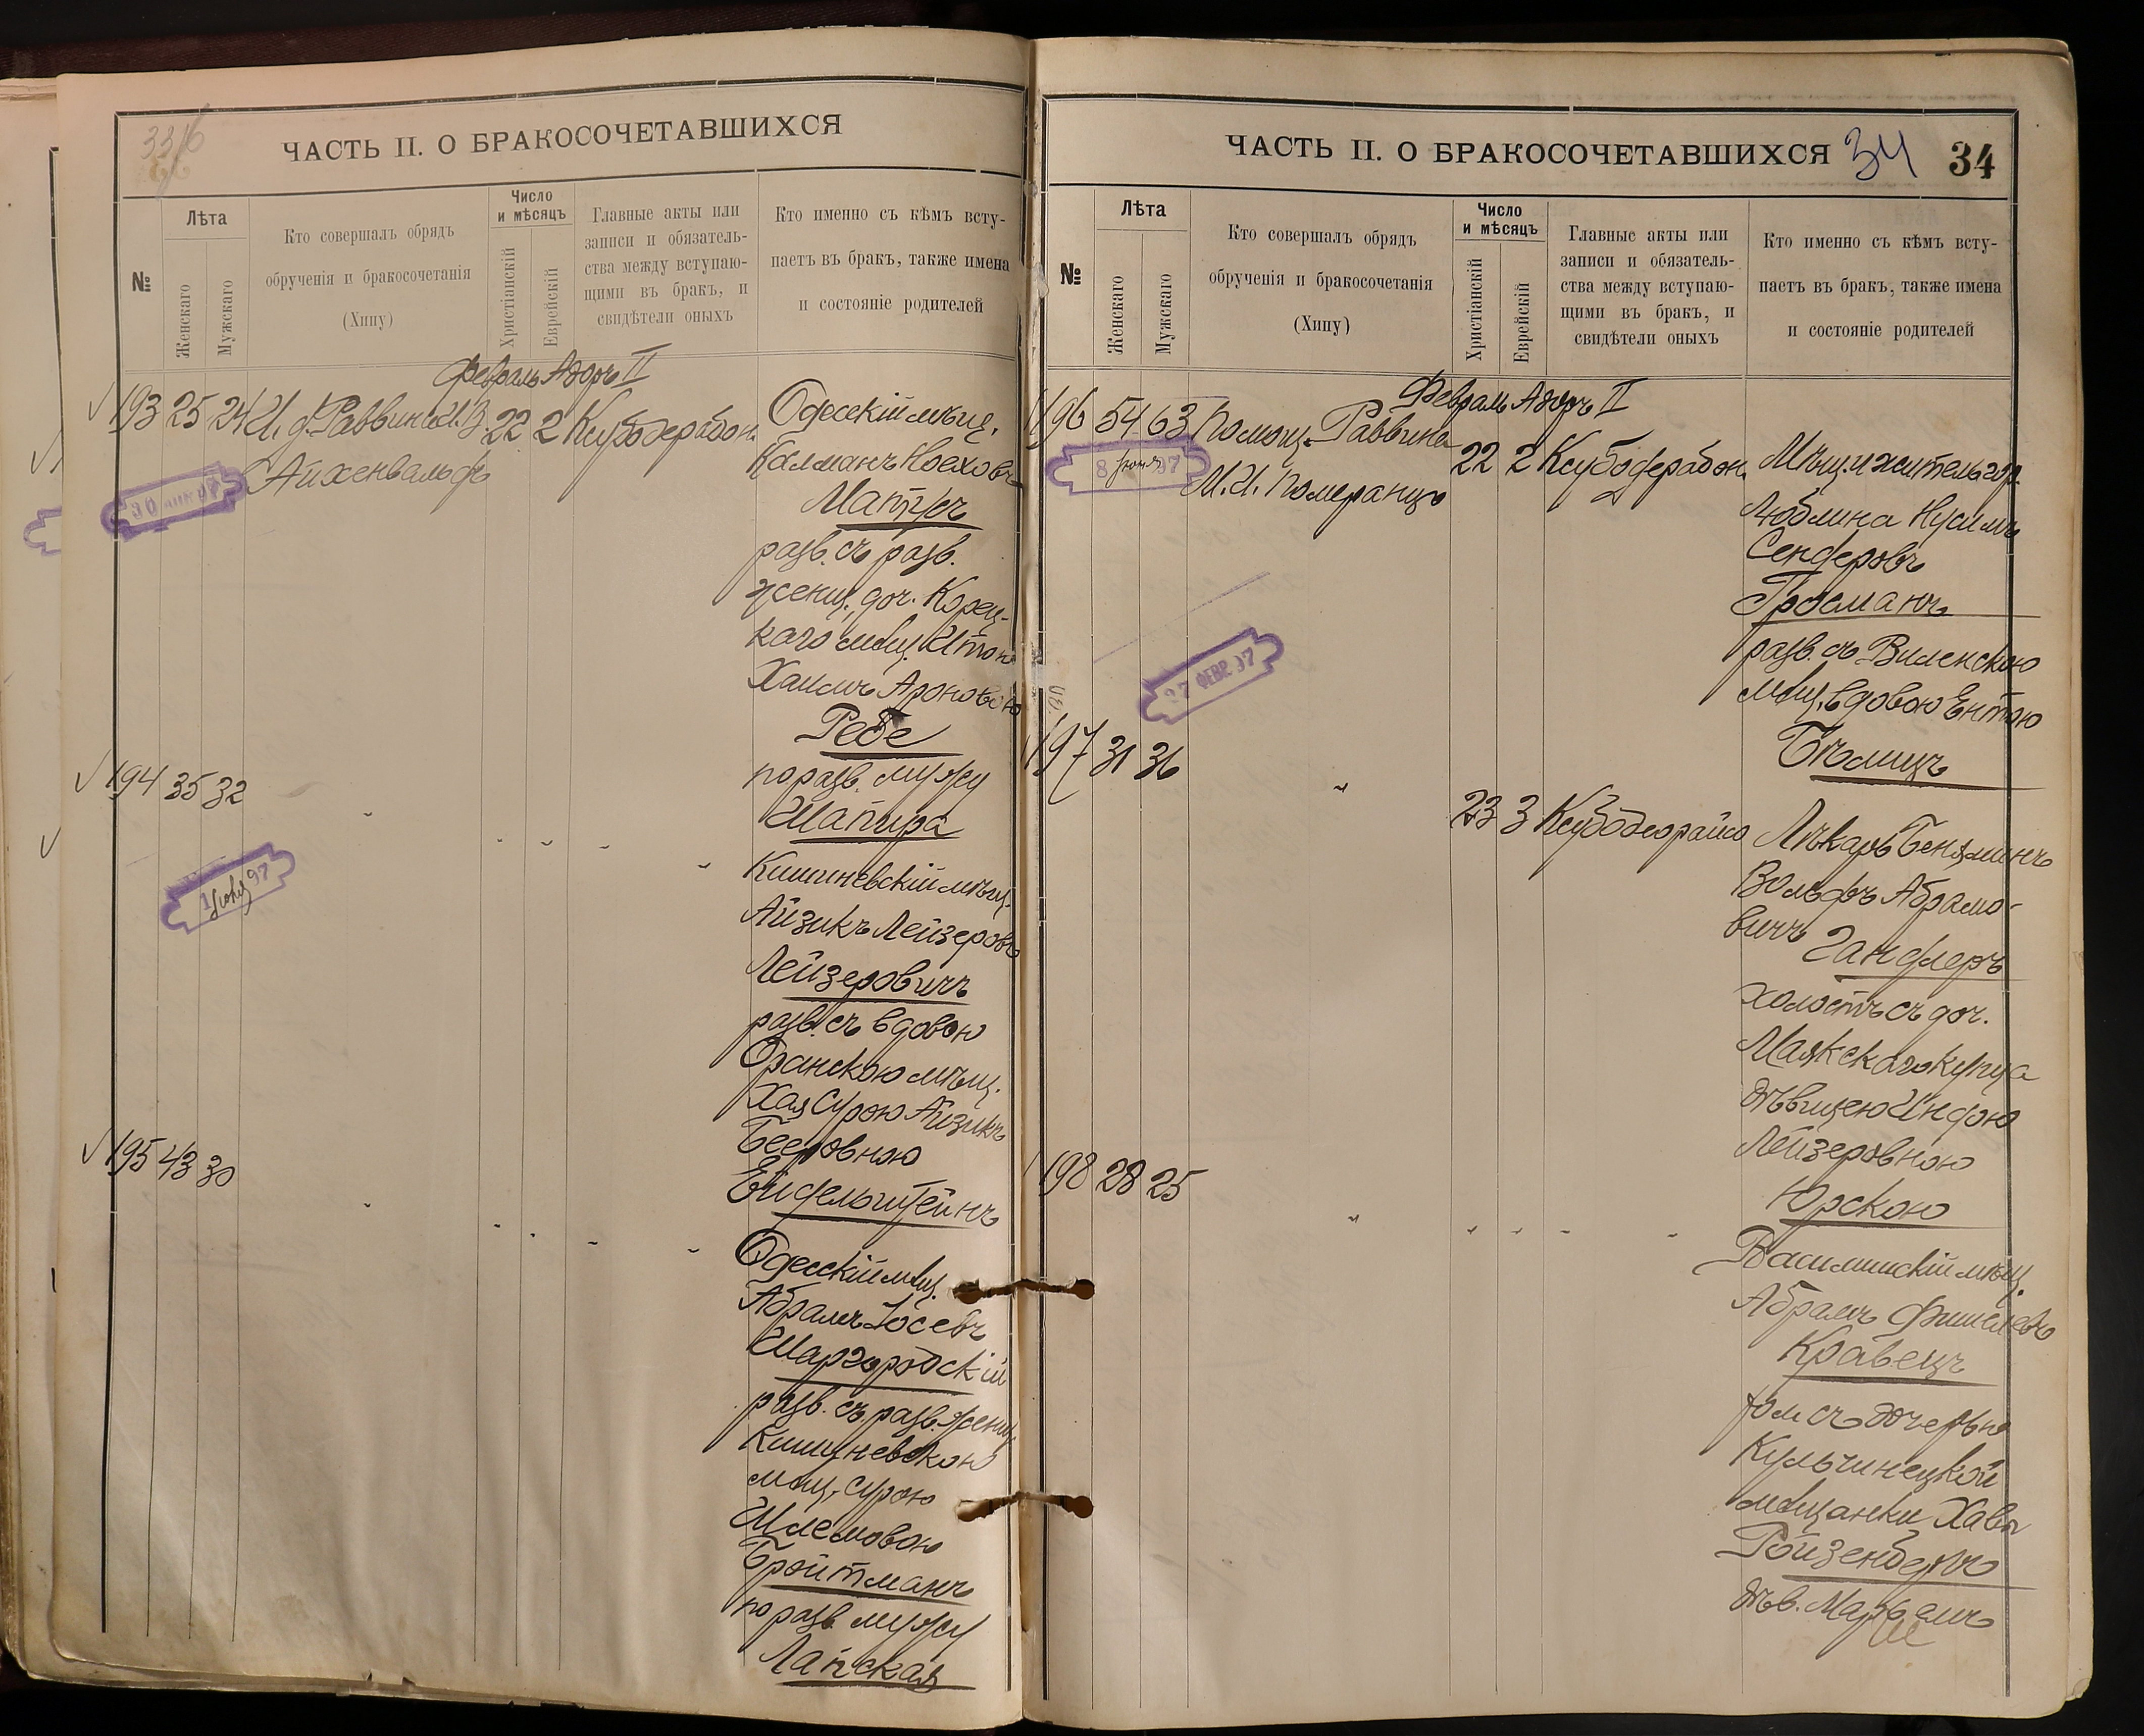 ЧАСТЬ II. О БРАКОСОЧЕТАВШИХСЯ
№
Лѣта
Женскаго
Мужскаго
Кто совершалъ обрядъ
обрученія и бракосочетанія
(Хипу)
Число
и мѣсяцъ
Христіанскій
Еврейскій
Главные акты или
записи и обязатель-
ства между вступаю-
щими въ бракъ, и
свидѣтели оныхъ
Кто именно съ кѣмъ всту-
паетъ въ бракъ, также имена
и состояніе родителей
Февраль Адоръ II
193 25 24 И. д. Раввина И. З. 22 2 Ксубодерабон.
Айхенвальдъ
Одесскій мѣщ.
Калманъ
разв. съ разв.
женщ., доч. Корец-
каго мѣщ.
Хаимъ Ароновою
Ребе
по разв. мужу
Шапира
194 35 32
1 Юня 97
Кишиневскій мѣщ.
Айзикъ Лейзеровъ
Лейзеровичъ
разв. съ вдовою
мѣщ.
Хая Сурою Айзикъ
Бееровною
Ейдельштейнъ
195 43 30
Одесскій мѣщ.
Абрамъ Іосевъ
Шаргородскій
разв. съ разв. женщ.
Кишиневскою
мѣщ. Сурою
Шлемовою
Бройтманъ
по разв. мужу
Лапская
ЧАСТЬ II. О БРАКОСОЧЕТАВШИХСЯ 34 34
№
Лѣта
Женскаго
Мужскаго
Кто совершалъ обрядъ
обрученія и бракосочетанія
(Хипу)
Число
и мѣсяцъ
Христіанскій
Еврейскій
Главные акты или
записи и обязатель-
ства между вступаю-
щими въ бракъ, и
свидѣтели оныхъ
Кто именно съ кѣмъ всту-
паетъ въ бракъ, также имена
и состояніе родителей
Февраль Адоръ II
196 54 63 Помощ. Раввина
М. И. Померанцъ
22 2 Ксубодерабон.
27 ФЕВР. 97
Мѣщ. и житель гор.
Люблина Нусимъ
Сендеровъ
Гросманъ
разв. съ Виленскою
мѣщ. вдовою Ентою
197 31 36 "
23 3 Ксубодеорайсо
Лѣкарь Беняминъ
Вольфъ Абрамо-
вичъ
Гандлеръ
холостъ съ доч.
Маякскаго купца
дѣвицею Индою
Лейзеровною
Юрскою
198 28 25 "
мѣщ.
Абрамъ Фишелевъ
Кравецъ
хол съ дочерью
Кульчинецкой
мѣщанки Хавы
Ройзенбергъ
дѣв.